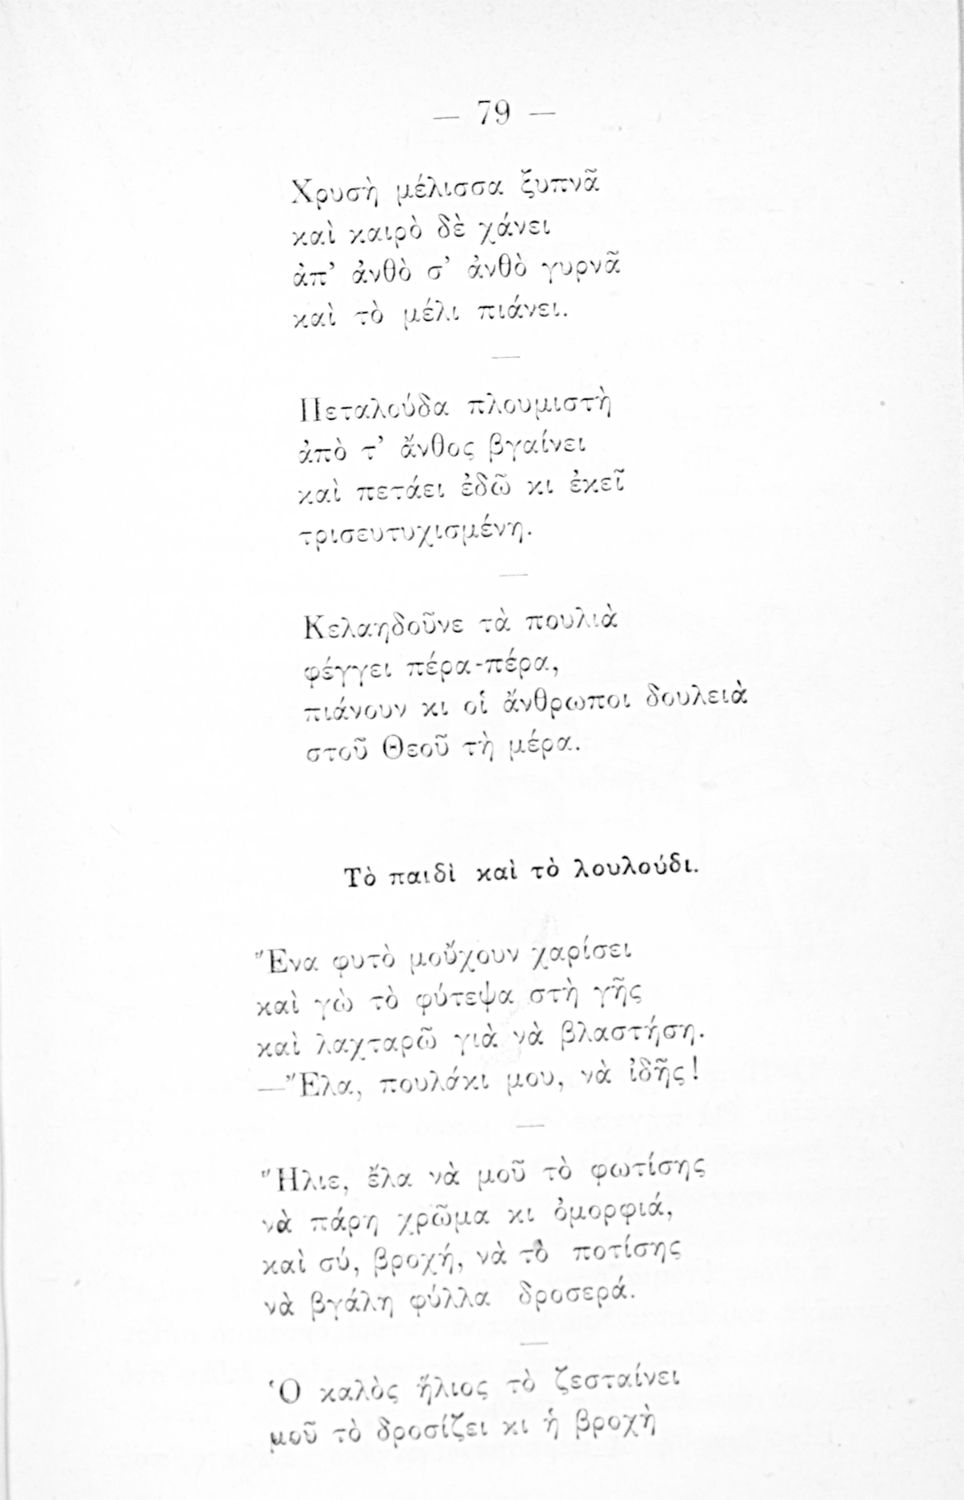 — 79 —
Χρυσὴ μέλισσα ξυπνᾶ
καὶ καιρὸ δὲ χάνει
ἀπ’ ἀνθὸ σ’ ἀνθὸ γυρνᾶ
καὶ τὸ μέλι πιάνει.
Πεταλούδα πλουμιστὴ
ἀπὸ τ’ ἄνθος βγαίνει
καὶ πετάει ἐδῶ κι ἐκεῖ
τρισευτυχισμένη.
Κελαηδοῦνε τὰ πουλιὰ
φέγγει πέρα-πέρα,
πιάνουν κι οἱ ἄνθρωποι δουλειὰ
στοῦ Θεοῦ τὴ μέρα.
Τὸ παιδὶ καὶ τὸ λουλούδι.
Ἕνα φυτὸ μοὔχουν χαρίσει
καὶ γὼ τὸ φύτεψα στὴ γῆς
καὶ λαχταρῶ γιὰ νὰ βλαστήση.
—Ἔλα, πουλάκι μου, νὰ ἰδῆς!
Ἥλιε, ἔλα νὰ μοῦ τὸ φωτίσης
νὰ πάρη χρῶμα κι ὀμορφιά,
καὶ σύ, βροχή, νὰ τὸ ποτίσης
νὰ βγάλη φύλλα δροσερά.
Ὁ καλὸς ἥλιος τὸ ζεσταίνει
μοῦ τὸ δροσίζει κι ἡ βροχὴ